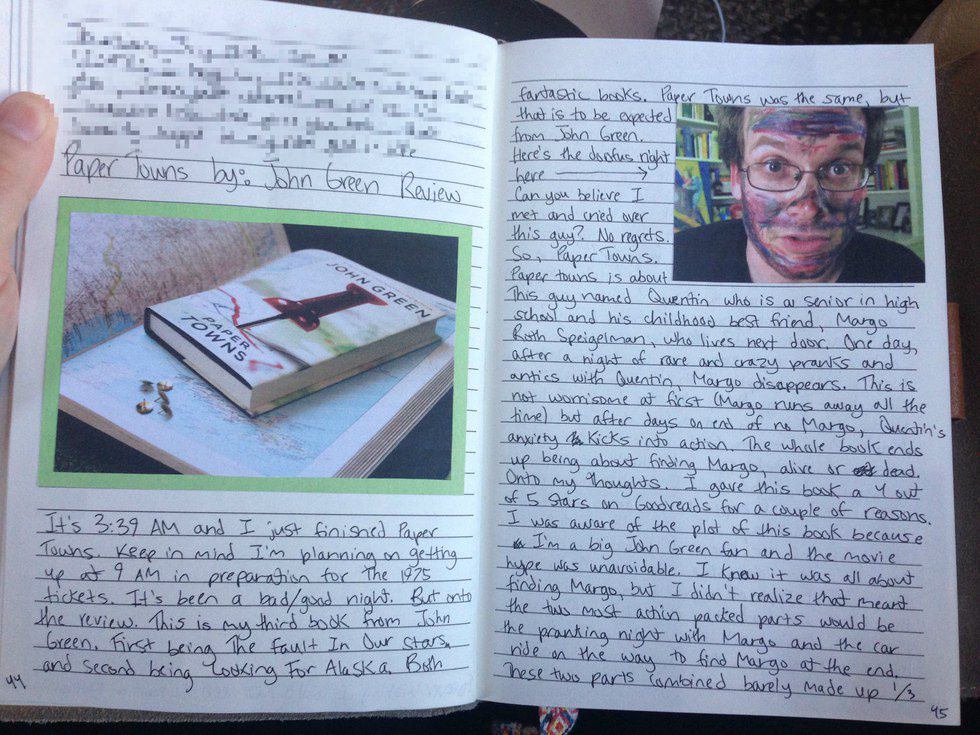 Paper Towns by: John Green Review
JOHN GREEN
PAPER
TOWNS
It's 3:39 AM and I just finished Paper
Towns. Keep in mind I'm planning on getting
up at 9 AM in preparation for The 1975
tickets. It's been a bad/good night. But onto
the review. This is my third book from John
Green. First being The Fault In Our Stars,
and second being Looking For Alaska. Both
44
fantastic books. Paper Towns was the same, but
that is to be expected
from John Green.
Here's the doofus right
here →
Can you believe I
met and cried over
this guy? No regrets.
So, Paper Towns.
Paper towns is about
This guy named Quentin who is a senior in high
school and his childhood best friend, Margo
Roth Speigelman, who lives next door. One day,
after a night of rare and crazy pranks and
antics with Quentin, Margo disappears. This is
not worrisome at first (Margo runs away all the
time) but after days on end of no Margo, Quentin's
anxiety kicks into action. The whole book ends
up being about finding Margo, alive or dead.
Onto my thoughts. I gave this book a 4 out
of 5 stars on Goodreads for a couple of reasons.
I was aware of the plot of this book because
I'm a big John Green fan and the movie
hype was unavoidable. I knew it was all about
finding Margo, but I didn't realize that meant
the two most action packed parts would be
the pranking night with Margo and the car
ride on the way to find Margo at the end.
These two parts combined barely made up 1/3
45